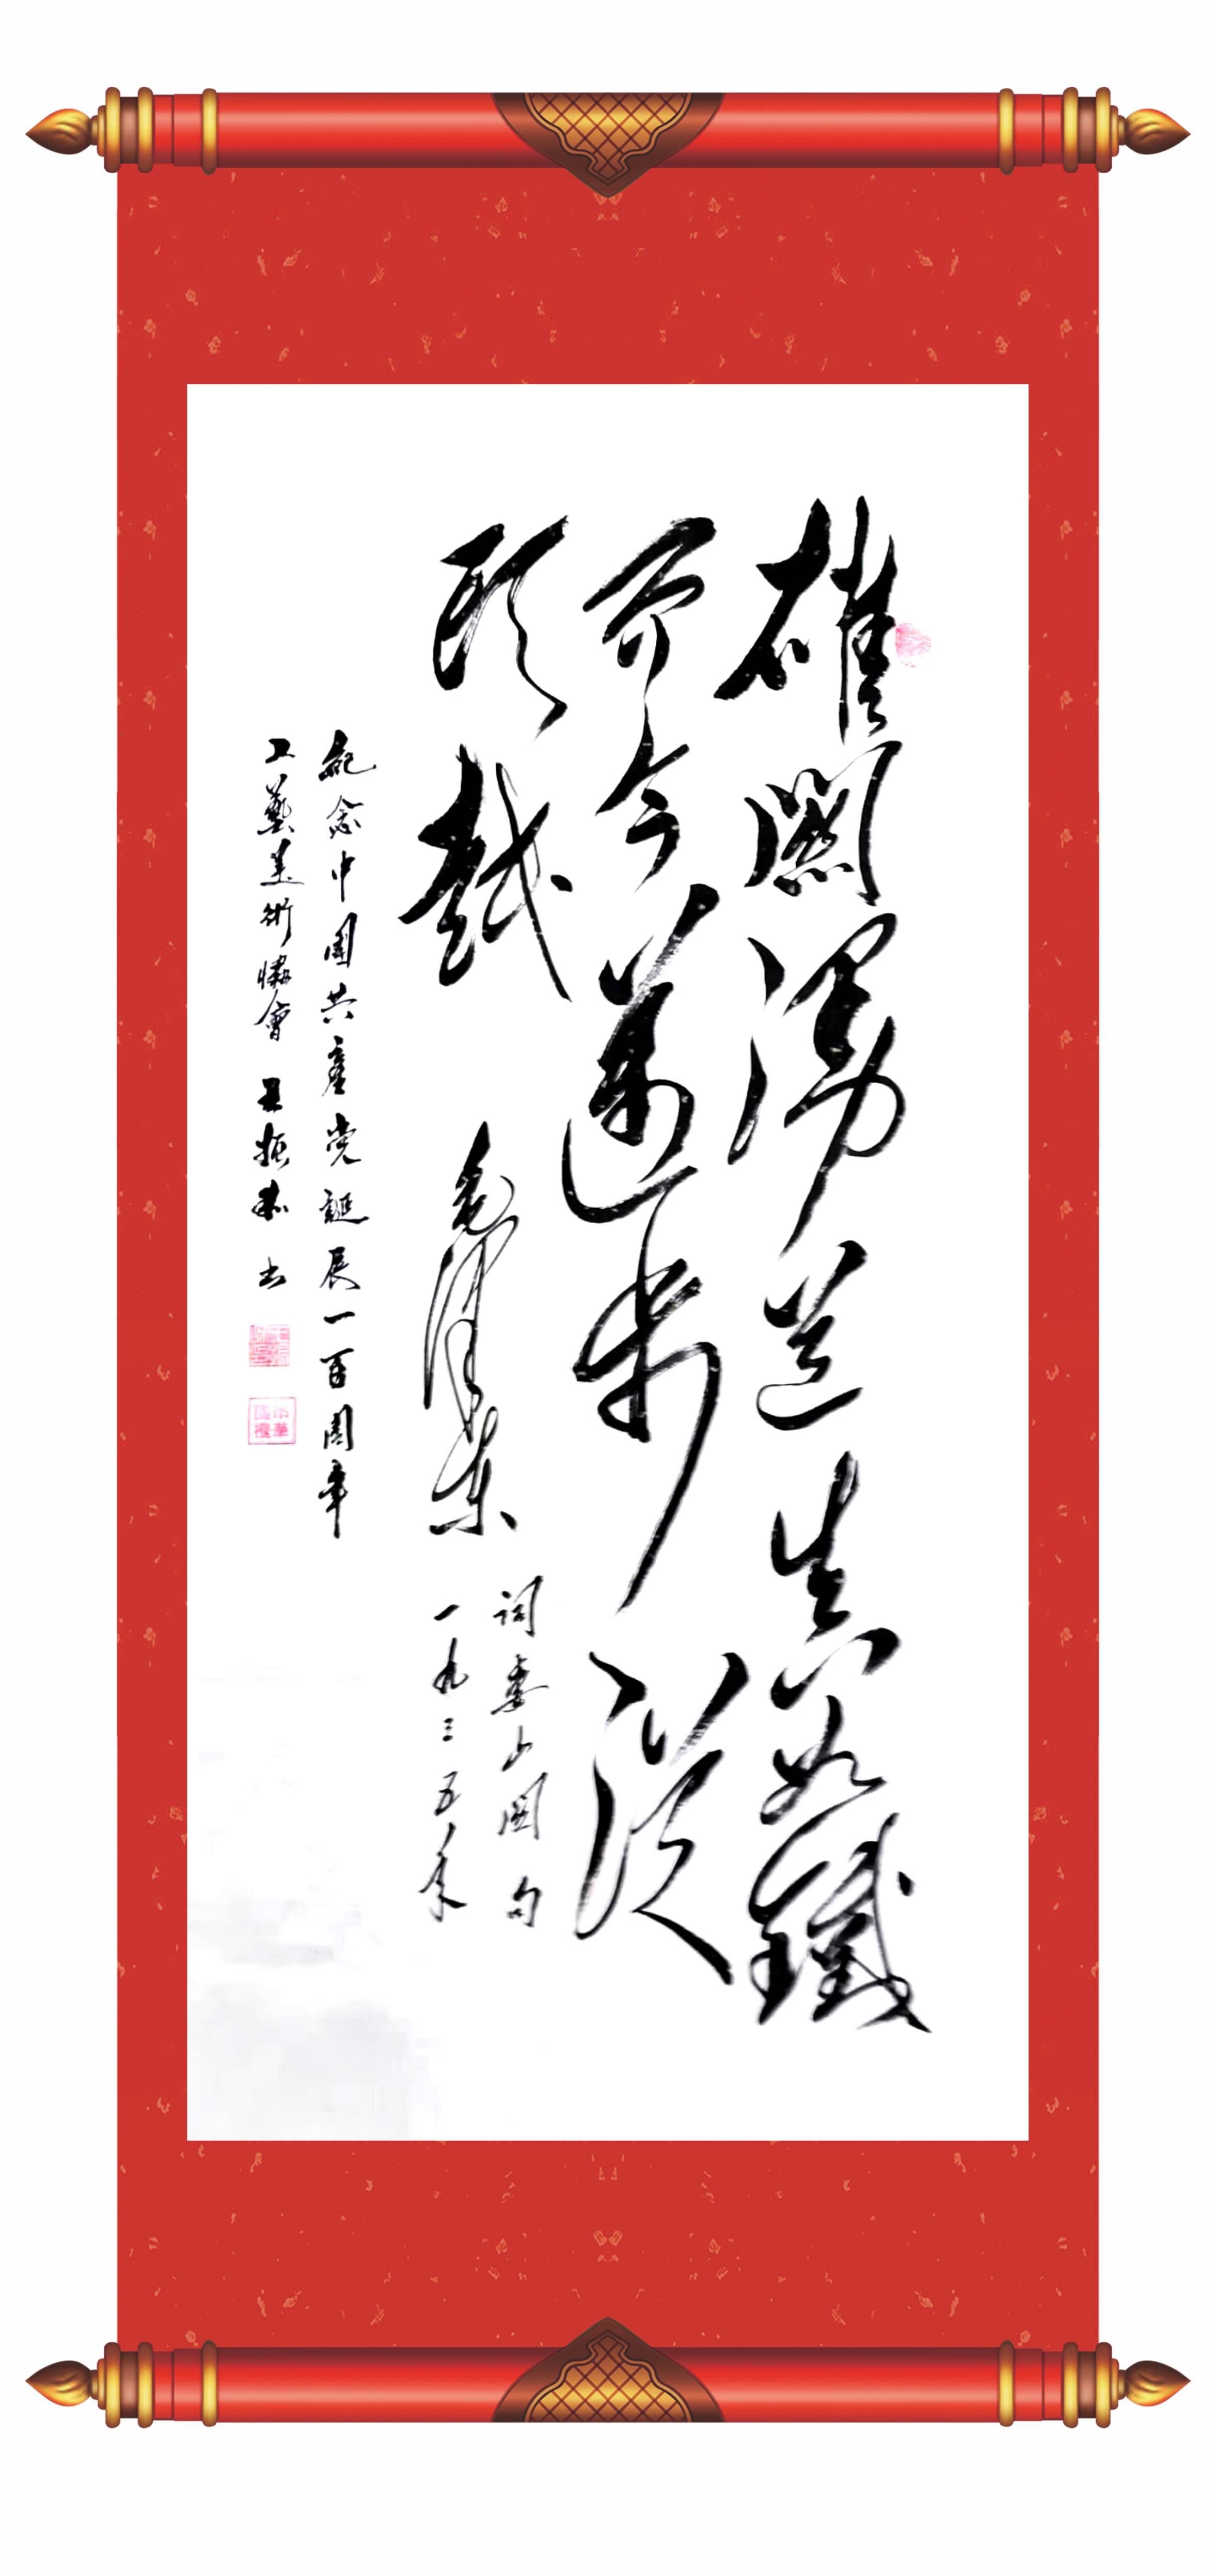 雄關漫道真如鐵
而今邁步從
頭越
毛澤东
詞婁山關句
一九三五年
紀念中國共產党誕辰一百周年
工藝美術協會 王振 书
中華國禮